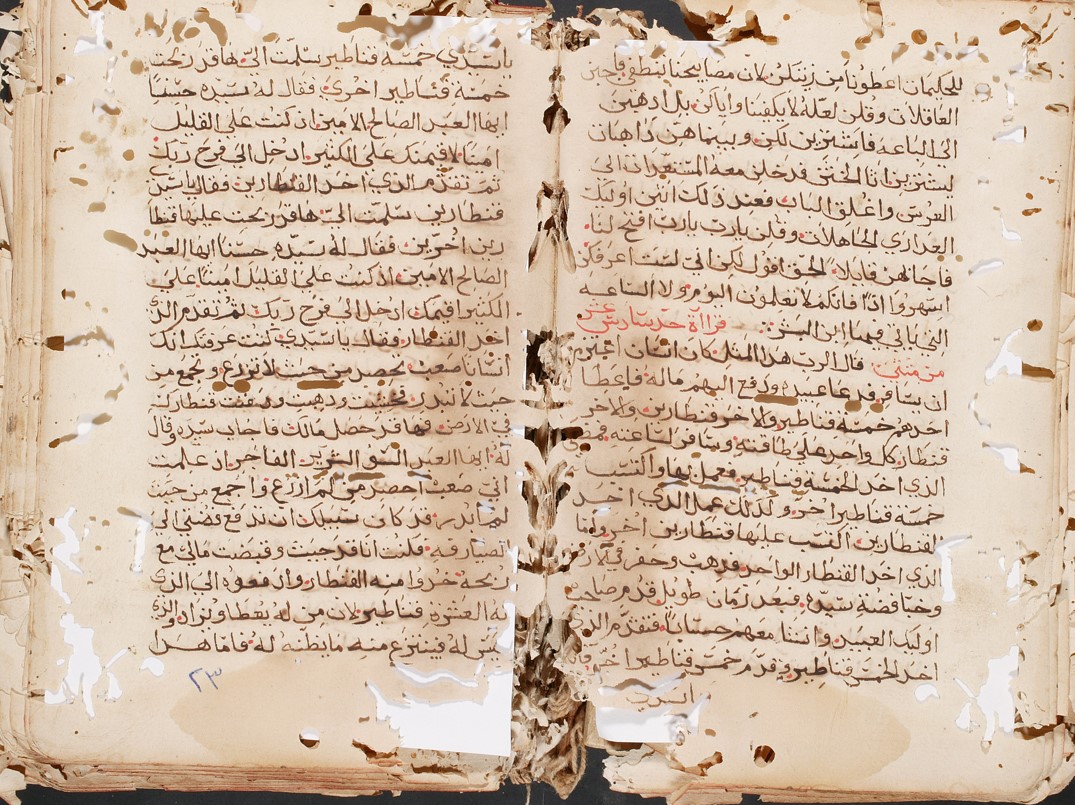 للحكيمات اعطونا من زيتكن لان مصابيحنا تنطفي فاجبن
العاقلات وقلن لعله لا يكفينا واياكن بل اذهبن
الى الباعه فاشترين لكن وبينما هن ذاهبات
ليشترين اتا الختن فدخلن معه المستعدات الى
العرس واغلق الباب فعند ذلك اتين اوليك
العذارى الجاهلات وقلن يارب يارب افتح لنا
فاجابهن قايلا الحق اقول لكن اني لست اعرفكن
اسهروا اذا فانكم لا تعلمون اليوم ولا الساعه
التي ياتي فيها ابن البشر قراأة حد سادس عشر
من متى قال الرب هذا المثل كان انسان اجمع
ان يسافر فدعا عبيده ودفع اليهم ماله فاعطا
احدهم خمسة قناطير والاخر قنطارين والاخر
قنطار كل واحد على طاقته وسافر لساعته فمضى
الذي اخذ الخمسة قناطير فعمل بها واكتسب
خمسة قناطير اخر وكذلك عمل الذي اخذ
القنطارين اكتسب عليها قنطارين اخر واما
الذي اخذ القنطار الواحد فذهب وحفر في الارض
وخبا فضة سيده فبعد زمان طويل قدم صاحب
اوليك العبيد واتنا معهم حسابا فتقدم الذي
اخذ الخمس قناطير وقدم خمس قناطير اخر قايلا
ياسيدي خمسة قناطير سلمت الي هاقد ربحت
خمسة قناطير اخرى فقال له سيده حسنا
ايها العبد الصالح الامين ان كنت على القليل
امينا لاقيمنك على الكثير ادخل الى فرح ربك
ثم تقدم الذي اخذ القنطارين وقال ياسيد
قنطارين سلمت الي هاقد ربحت عليها قنطا
رين اخرين فقال له سيده حسنا ايها العبد
الصالح الامين اذ كنت على القليل امينا على
الكثير اقيمك ادخل الى فرح ربك ثم تقدم الذ
اخذ القنطار وقال ياسيدي كنت عرفتك انك
انسانا صعب تحصد من حيث لا تزرع وتجمع من
حيث لا تبدر فخشيت وذهبت ودفنت قنطارك
في الارض فهاقد حصل مالك فاجاب سيده وقال
له ايها العبد السو الشرير الفاجر اذ علمت
اني صعب احصد من لم ازرع واجمع من حيث
لم ابدر قد كان سبيلك ان تدفع فضتي الى
الصيارفه فكنت انا قد جيت وقبضت مالي مع
ربحه خذوا منه القنطار وادفعوه الى الذي
له العشرة قناطير لان من له يعطا ويزاد والذي
ليس له فينتزع منه مايظنه له فاما هذا
٢٣